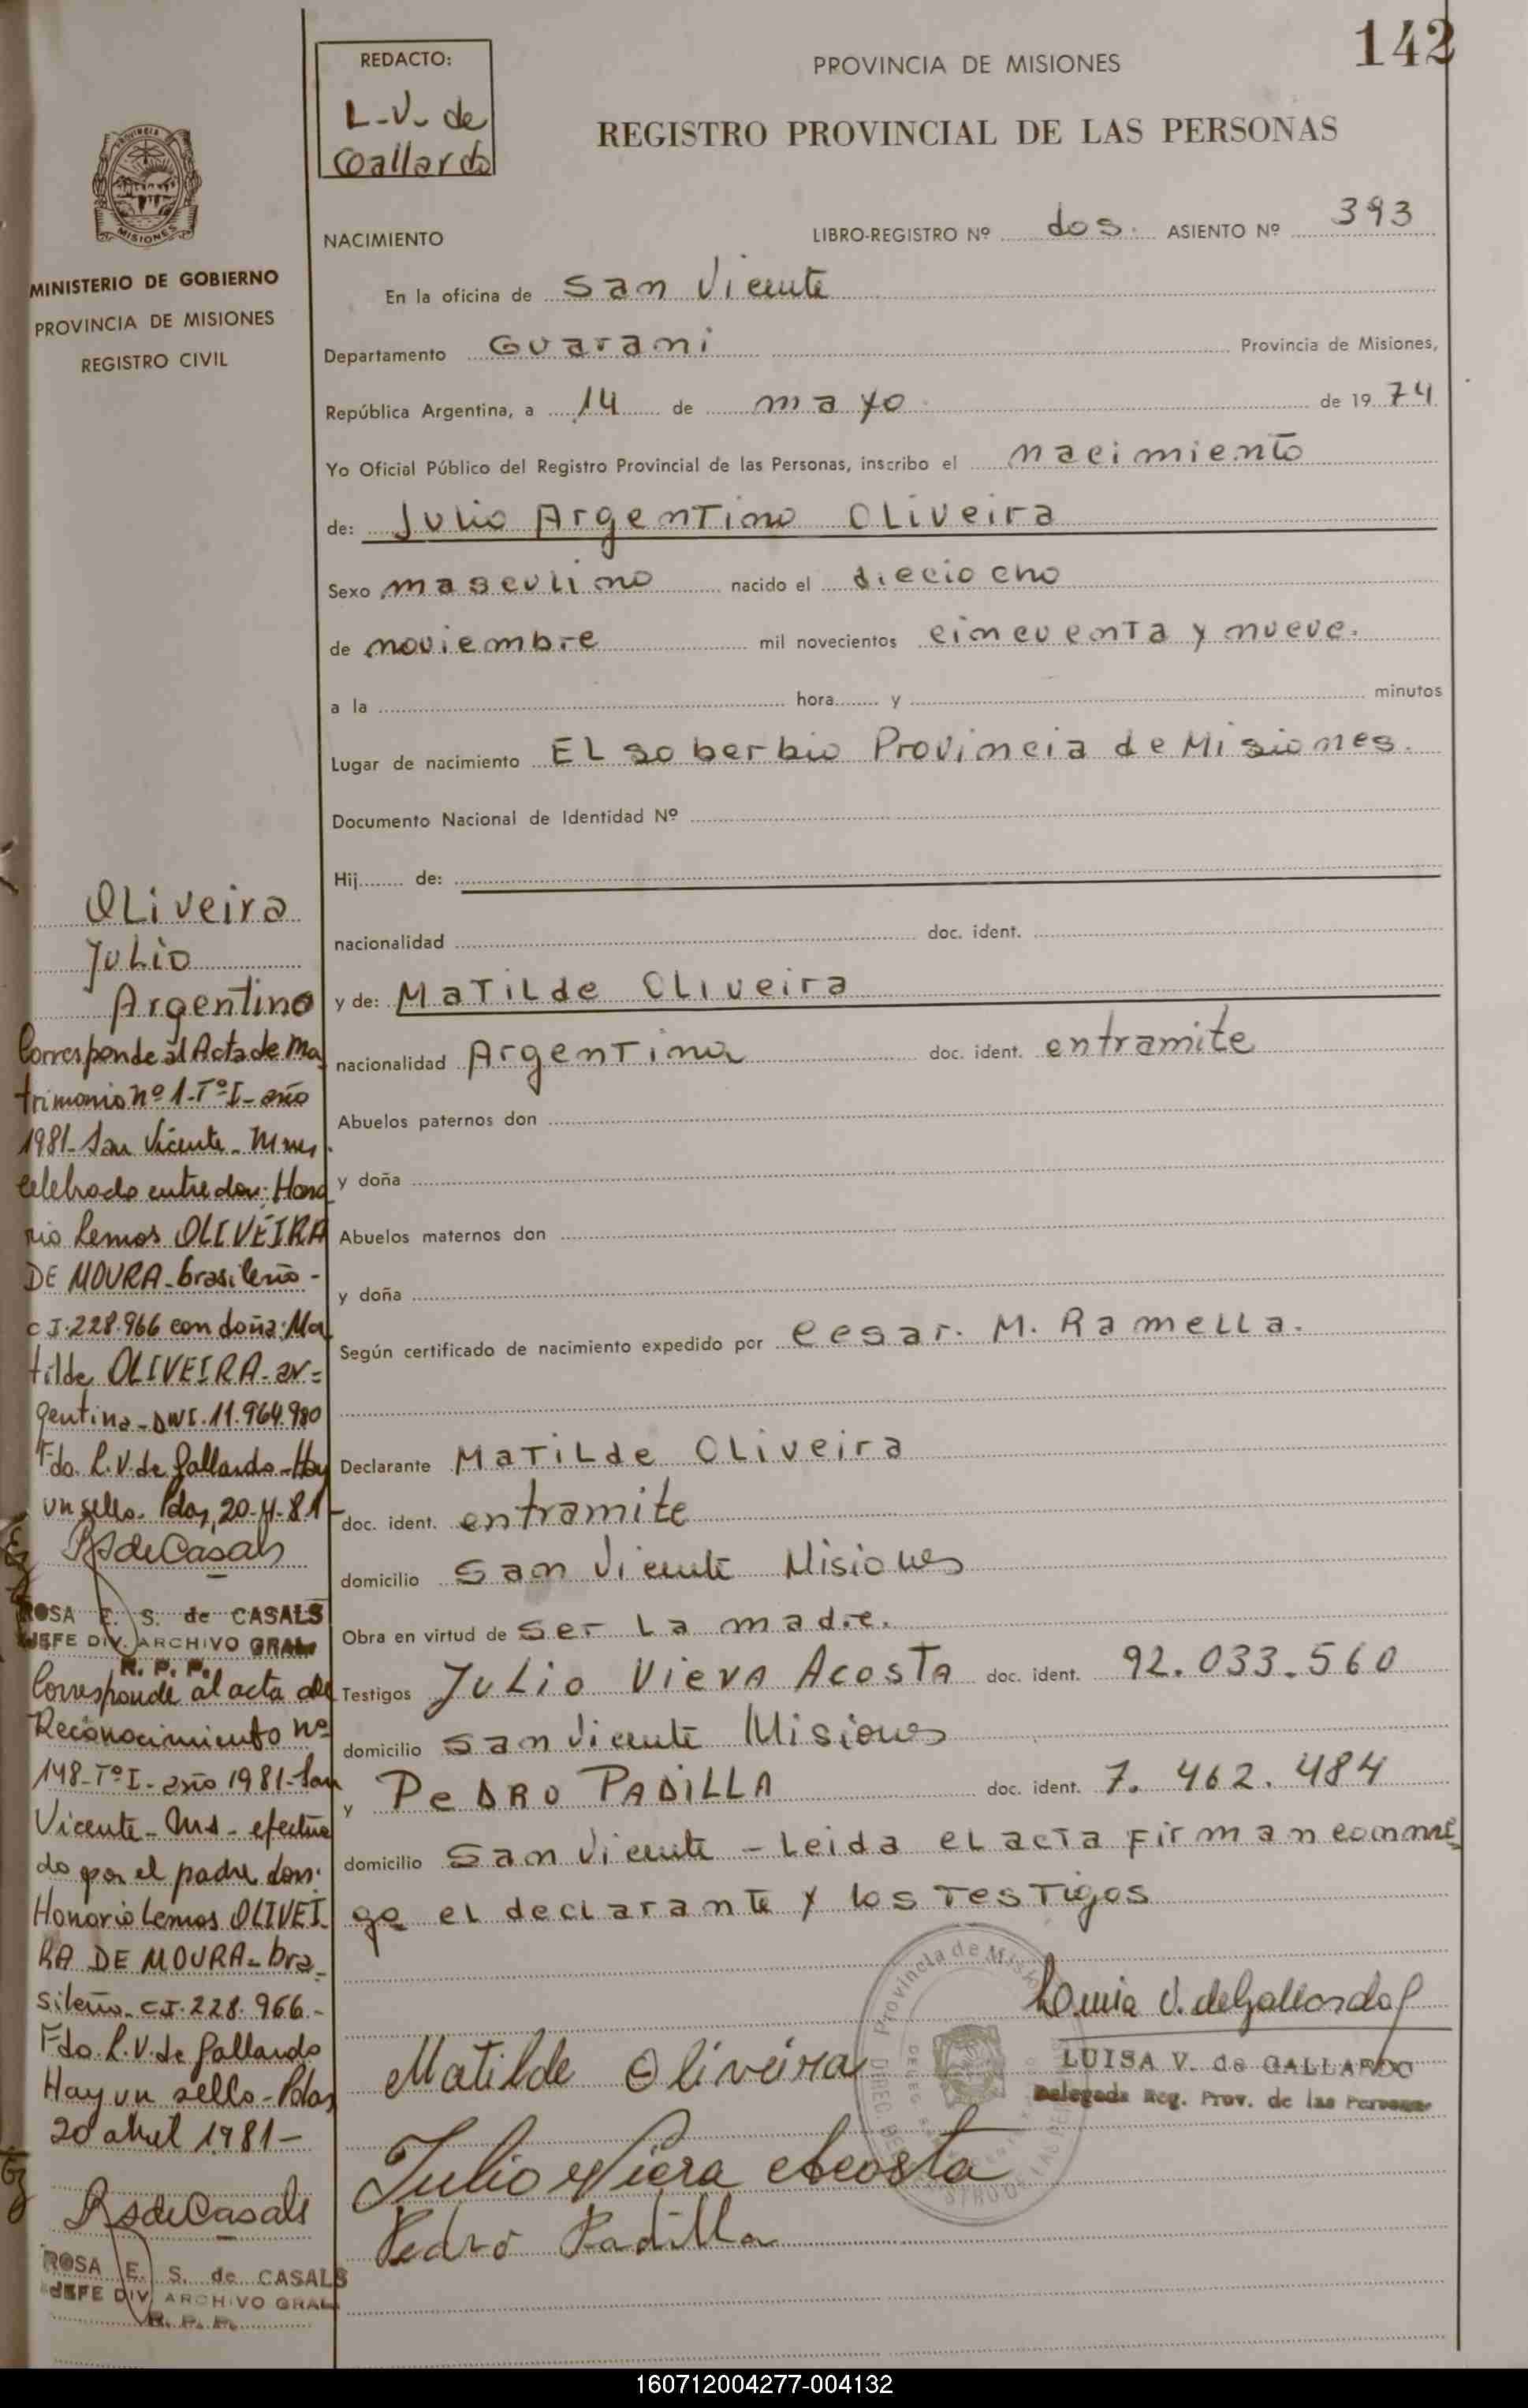 142
REDACTO:
L-V- de
Gallardo
PROVINCIA DE MISIONES
REGISTRO PROVINCIAL DE LAS PERSONAS
PROVINCIA
MISIONES
MINISTERIO DE GOBIERNO
PROVINCIA DE MISIONES
REGISTRO CIVIL
NACIMIENTO LIBRO-REGISTRO Nº dos. ASIENTO Nº 393
En la oficina de San Vicente
Departamento Guarani Provincia de Misiones,
República Argentina, a 14 de mayo de 1974
Yo Oficial Público del Registro Provincial de las Personas, inscribo el nacimiento
de: Julio Argentino Oliveira
Sexo masculino nacido el dieciocho
de noviembre mil novecientos cincuenta y nueve.
a la hora y minutos
Lugar de nacimiento El soberbio Provincia de Misiones.
Documento Nacional de Identidad Nº
Hij de:
nacionalidad doc. ident.
y de: Matilde Oliveira
nacionalidad Argentina doc. ident. entramite
Abuelos paternos don
y doña
Abuelos maternos don
y doña
Según certificado de nacimiento expedido por Cesar. M. Ramella.
Declarante Matilde Oliveira
doc. ident. entramite
domicilio San Vicente Misiones
Obra en virtud de ser la madre.
Testigos Julio Viera Acosta doc. ident. 92.033.560
domicilio San Vicente Misiones
y Pedro Padilla doc. ident. 7.462.484
domicilio San Vicente - Leida el acta firman conmi
go el declarante y los testigos
Luisa V. de Gallardo
LUISA V. de GALLARDO
Delegada Reg. Prov. de las Personas
Matilde Oliveira
Julio Viera Acosta
Pedro Padilla
Oliveira
Julio
Argentino
Corresponde al Acta de Ma
trimonio nº 1-Tº I- año
1981- San Vicente- Mnes.
celebrado entre don: Hono
rio Lemos OLIVEIRA
DE MOURA- brasileño-
CI. 228.966 con doña: Ma
tilde OLIVEIRA- ar=
gentina- DNI. 11.964.980
Fdo. L.V. de Gallardo- Hay
un sello. Pdas, 20-4-81-
RSdeCasals
ROSA E. S. de CASALS
JEFE DIV. ARCHIVO GRAL.
R. P. P.
Corresponde al acta de
Reconocimiento nº
148-Tº I- año 1981- San
Vicente- Mns- efectua
do por el padre don:
Honorio Lemos OLIVEI
RA DE MOURA- bra-
sileño. CI. 228.966.-
Fdo. L.V. de Gallardo
Hay un sello- Pdas,
20 abril 1981-
RSdeCasals
ROSA E. S. de CASALS
JEFE DIV. ARCHIVO GRAL.
R. P. P.
160712004277-004132